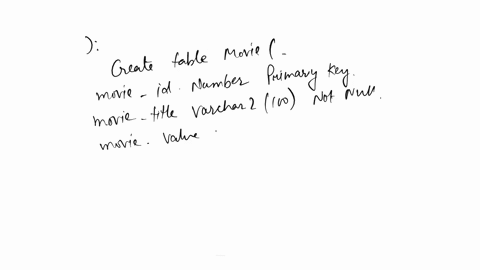 ):
Create table Movie (_
movie_id. Number Primary Key.
movie_title Varchar2 (100) Not Null.
movie. Value .